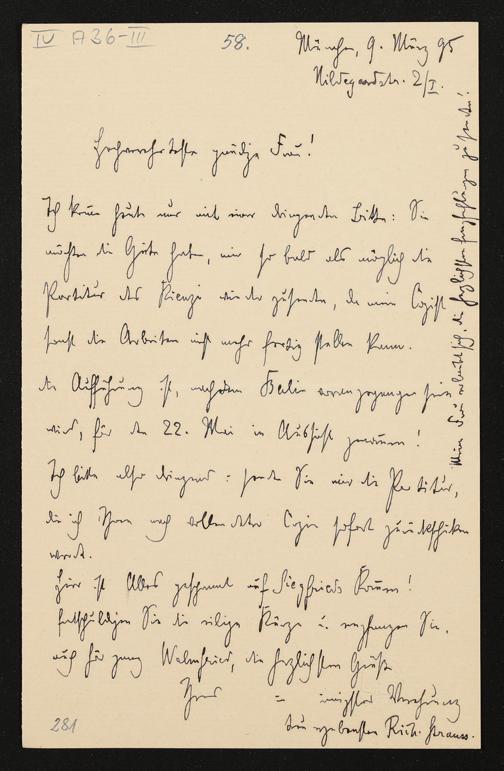 IV A 36-III
58.
München, 9. März 95
Hildegardstr. 2/I.
Hochverehrteste gnädige Frau!
Ich komme heute nur mit einer dringenden Bitte: Sie
möchten die Güte haben, mir so bald als möglich die
Partitur des Rienzi wieder zusenden, da mein Copist
sonst die Arbeiten nicht mehr fertig stellen kann.
die Aufführung ist, nachdem Berlin vorangegangen sein
wird, für den 22. Mai in Aussicht genommen!
Ich bitte also dringend: senden Sie mir die Partitur,
die ich Ihnen nach vollendeter Copie sofort zurückschicken
werde.
Hier ist Alles gespannt auf Siegfrieds Kommen!
Entschuldigen Sie die eilige Kürze u. empfangen Sie,
auch für ganz Wahnfried, die herzlichsten Grüße
Ihres
in innigster Verehrung
treu ergebensten Rich. Strauss.
Meine Frau erlaubt sich, die herzlichsten Empfehlungen zu senden!
281